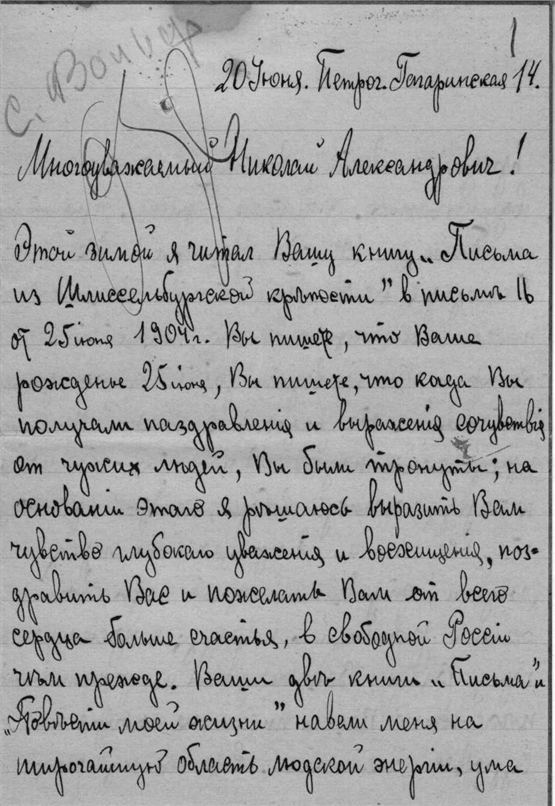 С. Вольф
1
20 Июня. Петрог. Гагаринская 14.
Многоуважаемый Николай Александрович!
Этой зимой я читал Вашу книгу „Письма
из Шлиссельбургской крѣпости" в письмѣ 16
от 25 июня 1904 г. Вы пишете, что Ваше
рожденье 25 июня, Вы пишете, что кода Вы
получали паздравленія и выраженія сочувствія
от чужих людей, Вы были тронуты; на
основаніи этаго я рѣшаюсь выразить Вам
чувство глубокаго уваженія и восхищенія, поз=
дравить Вас и пожелать Вам от всего
сердца больше счастья, в свободной Россіи
чѣм прежде. Ваши двѣ книги „Письма" и
„Повѣсти моей жизни" навели меня на
широчайшую область людской энергіи, ума